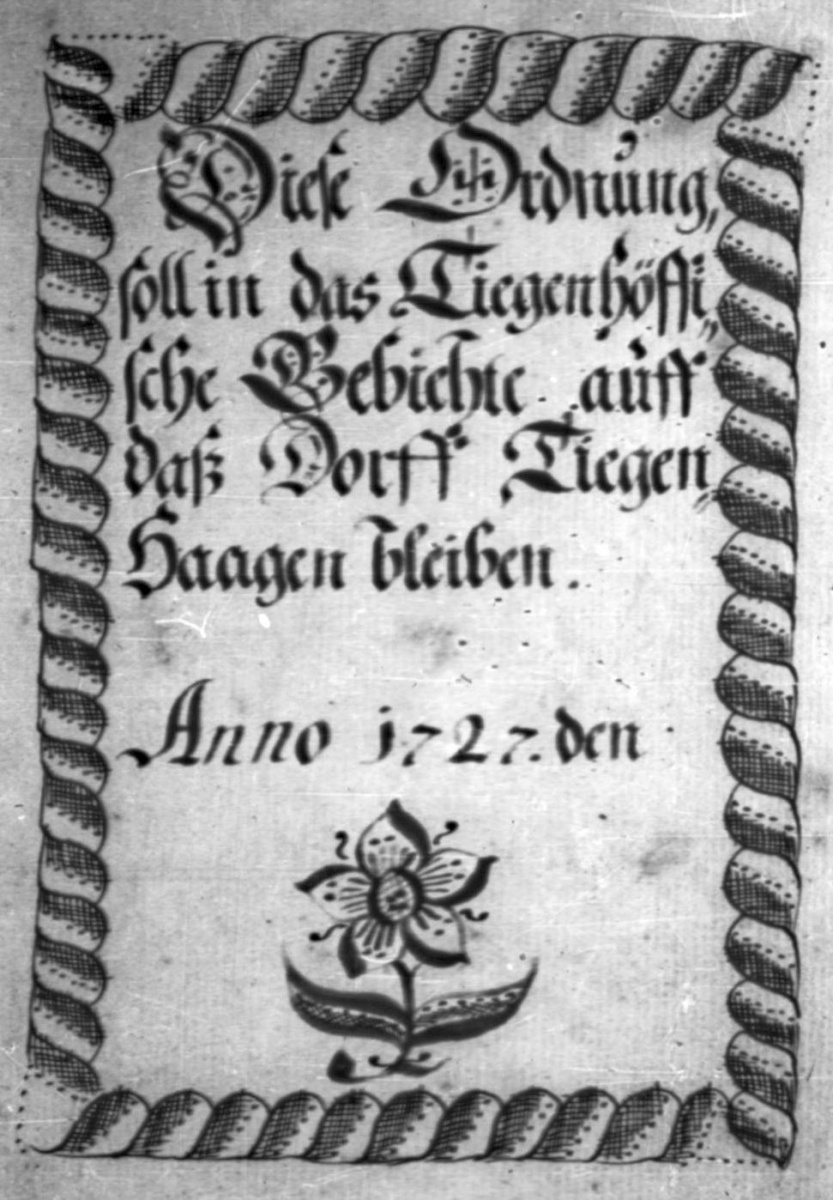 Diese Ordnung,
soll in das Tiegenhöffi„
sche Gebiehte auff
daß Dorff Tiegen„
Haagen bleiben.
Anno 1727. den